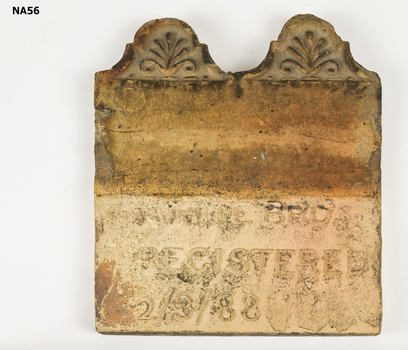 NA56
BROS
REGISTERED
2/3/88